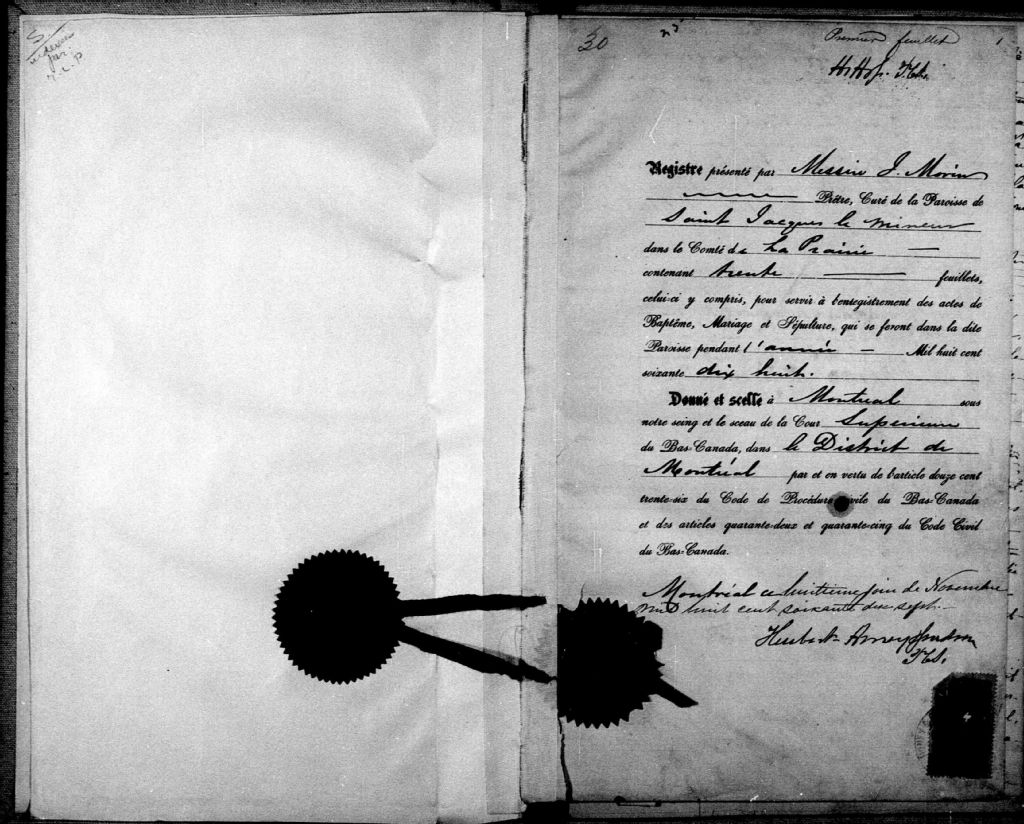 par
30
Premier feuillet
1
Registre présenté par Messire J. Morin
Prêtre, Curé de la Paroisse de
Saint Jacques le mineur
dans le Comté de La Prairie
contenant trente feuillets,
celui-ci y compris, pour servir à l'enregistrement des actes de
Baptême, Mariage et Sépulture, qui se feront dans la dite
Paroisse pendant l'année Mil huit cent
soixante dix huit.
Donné et scellé à Montreal sous
notre seing et le sceau de la Cour Superieure
du Bas-Canada, dans le District de
Montréal par et en vertu de l'article douze cent
trente-six du Code de Procédure vile du Bas-Canada
et des articles quarante-deux et quarante-cinq du Code Civil
du Bas-Canada.
Montréal ce huitieme jour de Novembre
mil huit cent soixante dix sept.